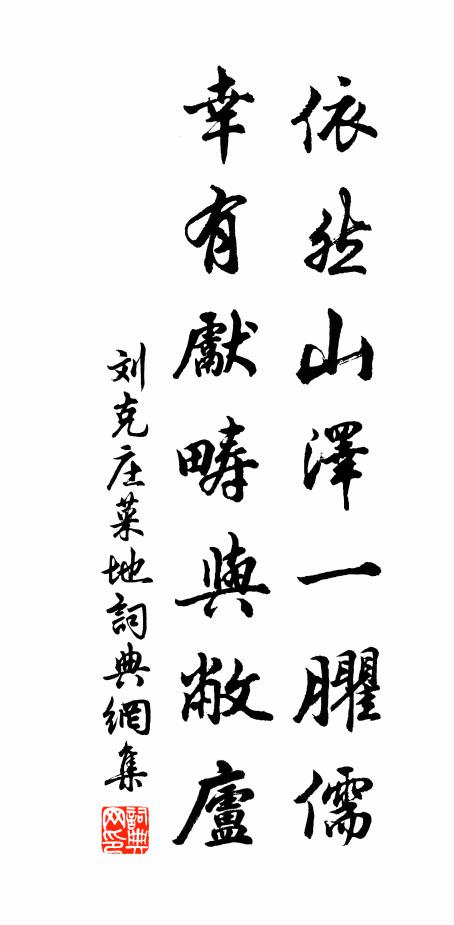 依然山澤一臞儒
幸有獻疇與敝廬
刘克庄菜地詞典網集
詞典网印